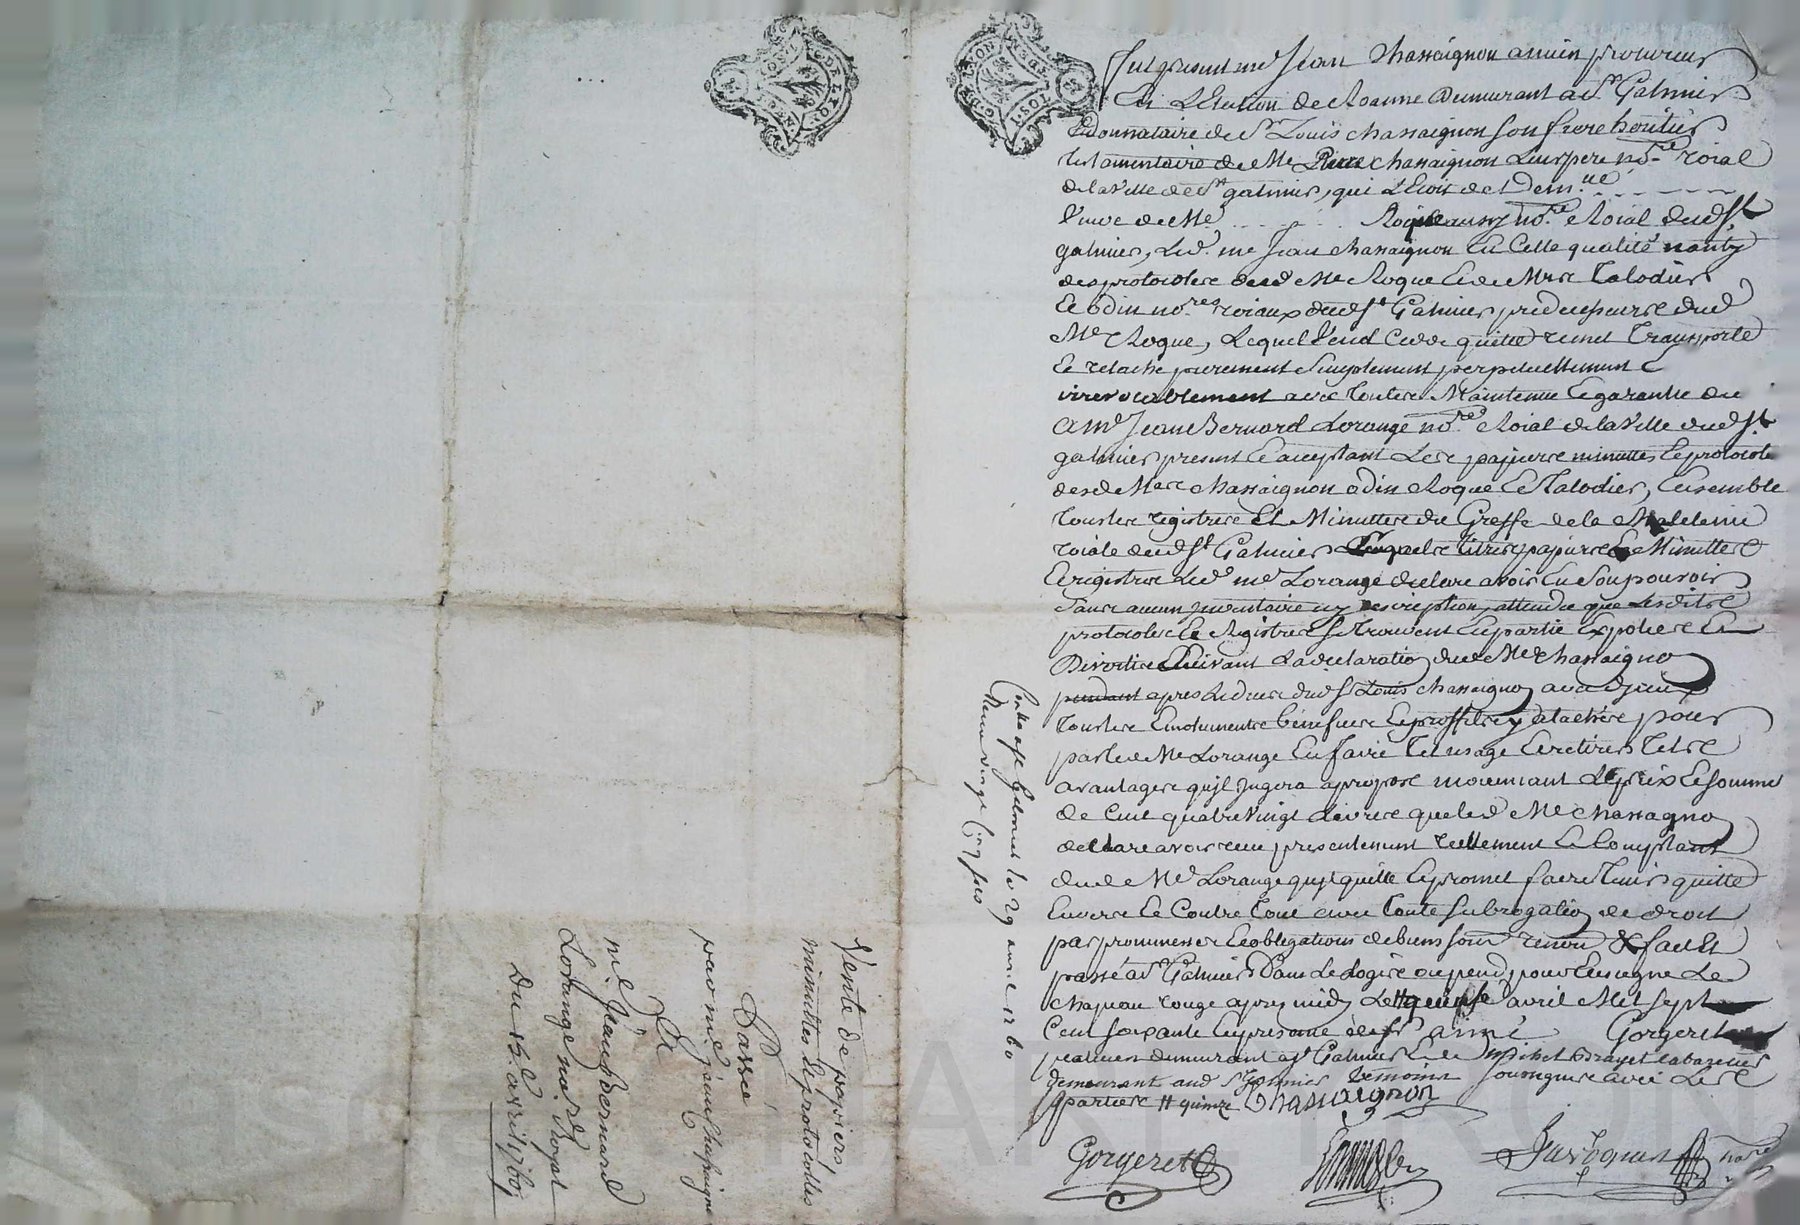 Fut present me Jean Chassaignon ancien procureur
En L'Election de Roanne Demeurant a St Galmier
donnataire de Sr Louis chassaignon son frere heritier
testamentaire de Me Pierre chassaignon Leur pere nore roial
de la Ville de St galmier, qui L'Etoit de Demlle
Veuve de Me Roque aussy nore Roial dud St
galmier, Led. me Jean chassaignon En Cette qualité nanty
des protocoles dud Me Roque Et de Mrs Talodier
Et odin nores roiaux dud St Galmier predecesseurs dud
Me Roque, Lequel Vend Cede quitte remet Transporte
Et relache purement Simplement perpetuellement E
irrevocablement avec toutes Maintenue Et garantie de
a me Jean Bernard Lorange nore Roial de la Ville dud St
galmier present Et acceptant Les papiers minuttes Et protocoles
desd Mes chassaignon odin Roque Et Talodier, Ensemble
tous les registres Et Minuttes du Greffe de la
roiale dud St Galmier Lesquels titres papiers Et Minuttes
Et registres Led me Lorange declare avoir En Son pouvoir
Sans aucun inventaire ny description, attendu que Lesdits
protocoles Et Registres se trouvent En partie Expoliés En
Suivant La declaration dud Me chassaigno
pendant apres Le deces dud Sr Louis chassaignon avec
tous les Emoluments benefices Et proffits y attachés pour
par led Me Lorange En faire tel usage Et retirer tels
avantages qu'il Jugera apropos moienant Le prix Et somme
de Cent quatre Vingt Livres que led Me chassagno
declare avoir reçu presentement reellement Et Comptant
dud Me Lorange quil quitte Et promet faire tenir quitte
Envers Et Contre tous avec toute Subrogation de droit
par promesses Et obligations de biens soum renon & fait Et
passé a St Galmier Dans Le Logis ou pend pour Enseigne Le
chapeau rouge apres midy Le quinse avril Mil Sept
Cent soixante En presance de Sr aimé Gorgeret
praticien demeurant a St Galmier Et de Michel Brayet cabaretier
demeurant aud St Galmier temoins soussignés avec Les
parties # quinze Chassaignon
Gorgeret
Conlle a St Galmier le 29 avril 1760
Reçu vingt Cinq sols
Vente de papiers
minuttes Et protocolles
Passée
par me jean Chassaigno
A
me Jean Bernard
Lorange nore Royal
Du 15e avril 1760